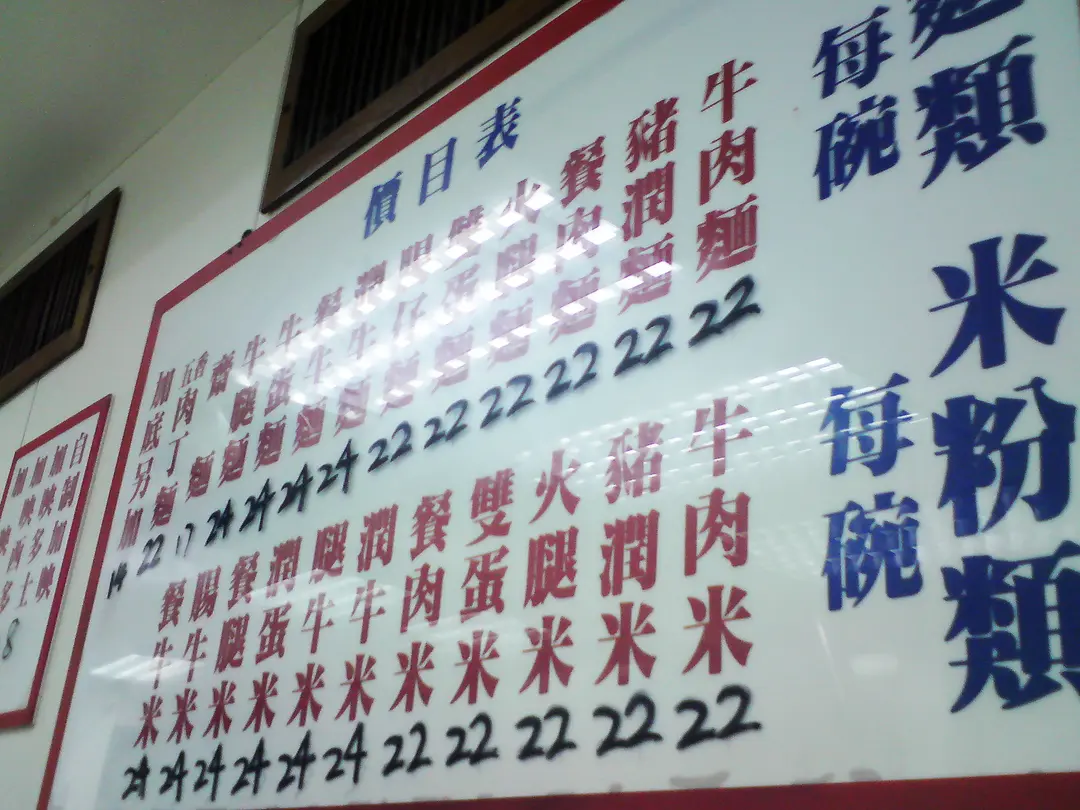 麵類
每碗
米粉類
每碗
價目表
牛肉麵 22
豬潤麵 22
餐肉麵 22
火腿麵 22
雙蛋麵 22
腸仔麵 22
潤牛麵 24
餐牛麵 24
牛蛋麵 24
牛腿麵 24
齋麵 17
香五肉丁麵 22
加底另加 14
牛肉米 22
豬潤米 22
火腿米 22
雙蛋米 22
餐肉米 22
潤牛米 24
腿牛米 24
潤蛋米 24
餐腿米 24
腸牛米 24
餐牛米 24
自制加映
加映多士
加映
8